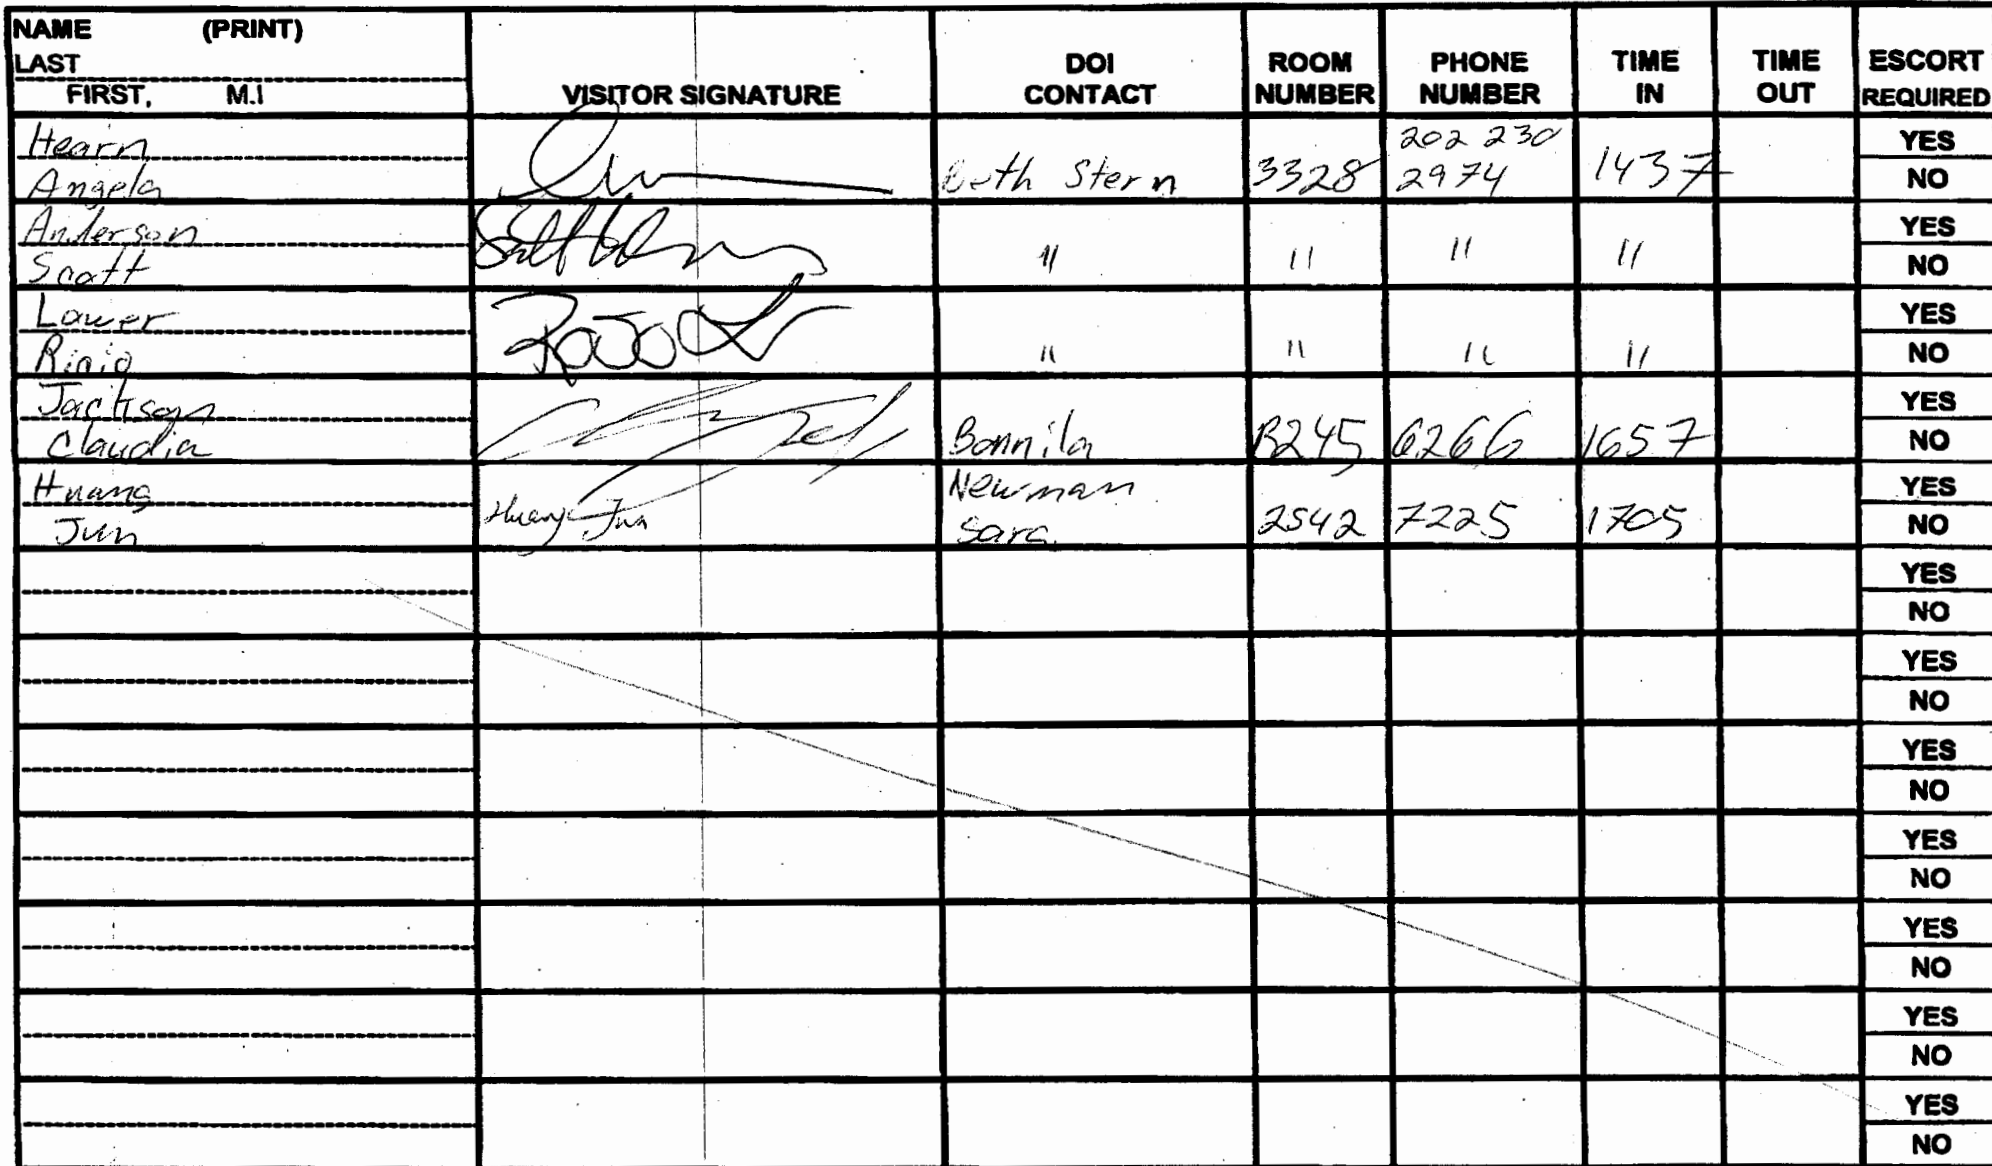 NAME (PRINT)
LAST
FIRST, M.I
VISITOR SIGNATURE
DOI CONTACT
ROOM NUMBER
PHONE NUMBER
TIME IN
TIME OUT
ESCORT REQUIRED
Hearn
Angela
Beth Stern
3328
202 230
2974
1437
YES
NO
Anderson
Scott
"
"
"
"
YES
NO
Lawer
"
"
"
"
YES
NO
Jackson
Claudia
Bonnila
B245
6266
1657
YES
NO
Huang
Jun
Huang Jun
Newman
Sara
2542
7225
1705
YES
NO
YES
NO
YES
NO
YES
NO
YES
NO
YES
NO
YES
NO
YES
NO